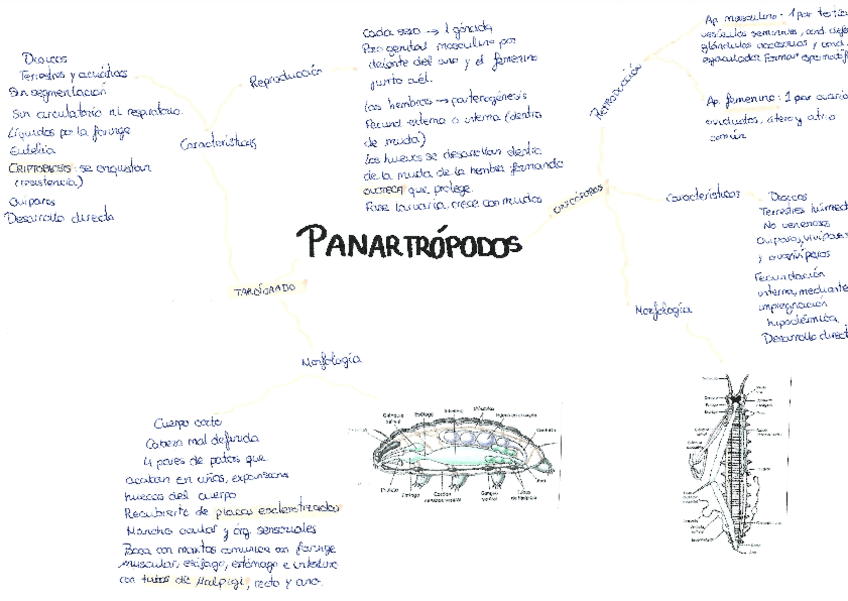 PANARTRÓPODOS
TARDÍGRADO
Características
Dioicos
Terrestres y acuáticos
Sin segmentación
Sin circulatorio ni respiratorio.
Líquidos por la faringe
Eutelia
CRIPTOBIOSIS: se enquistan
(resistencia)
Ovíparos
Desarrollo directo
Reproducción
Cada sexo → 1 gónada
Poro genital masculino por
delante del ano y el femenino
junto a él.
Las hembras → partenogénesis
Fecund externa o interna (dentro
de muda)
Los huevos se desarrollan dentro
de la muda de la hembra formando
OOTECA que protege.
Fase larvaria, crece con mudas
Morfología
Cuerpo corto
Cabeza mal definida
4 pares de patas que
acaban en uñas, expansiones
huecas del cuerpo
Recubierto de placas esclerotizadas
Mancha ocular y órg. sensoriales
Boca con comunica con faringe
muscular, esófago, estómago e intestino
con tubos de Malpigi, recto y ano.
ONICÓFOROS
REPRODUCCIÓN
Ap. masculino: 1 par
vesículas seminales, cond.
glándulas accesorias y cond.
eyaculador. Forman
Ap. femenino: 1 par ovario
oviductos, útero y atrio
común
Características
Dioicos
Terrestres
No venenosos
Ovíparos,
y ovovivíparos
Fecundación
interna, mediante
impregnación
hipodérmica.
Desarrollo
Morfología